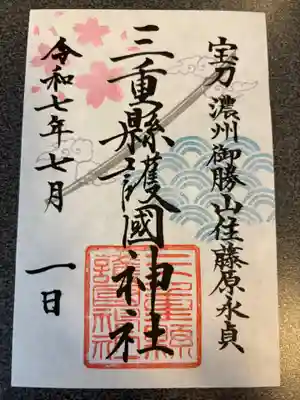 宝刀 濃州御勝山住藤原永貞
三重縣護國神社
令和七年七月一日
三重県護国神社